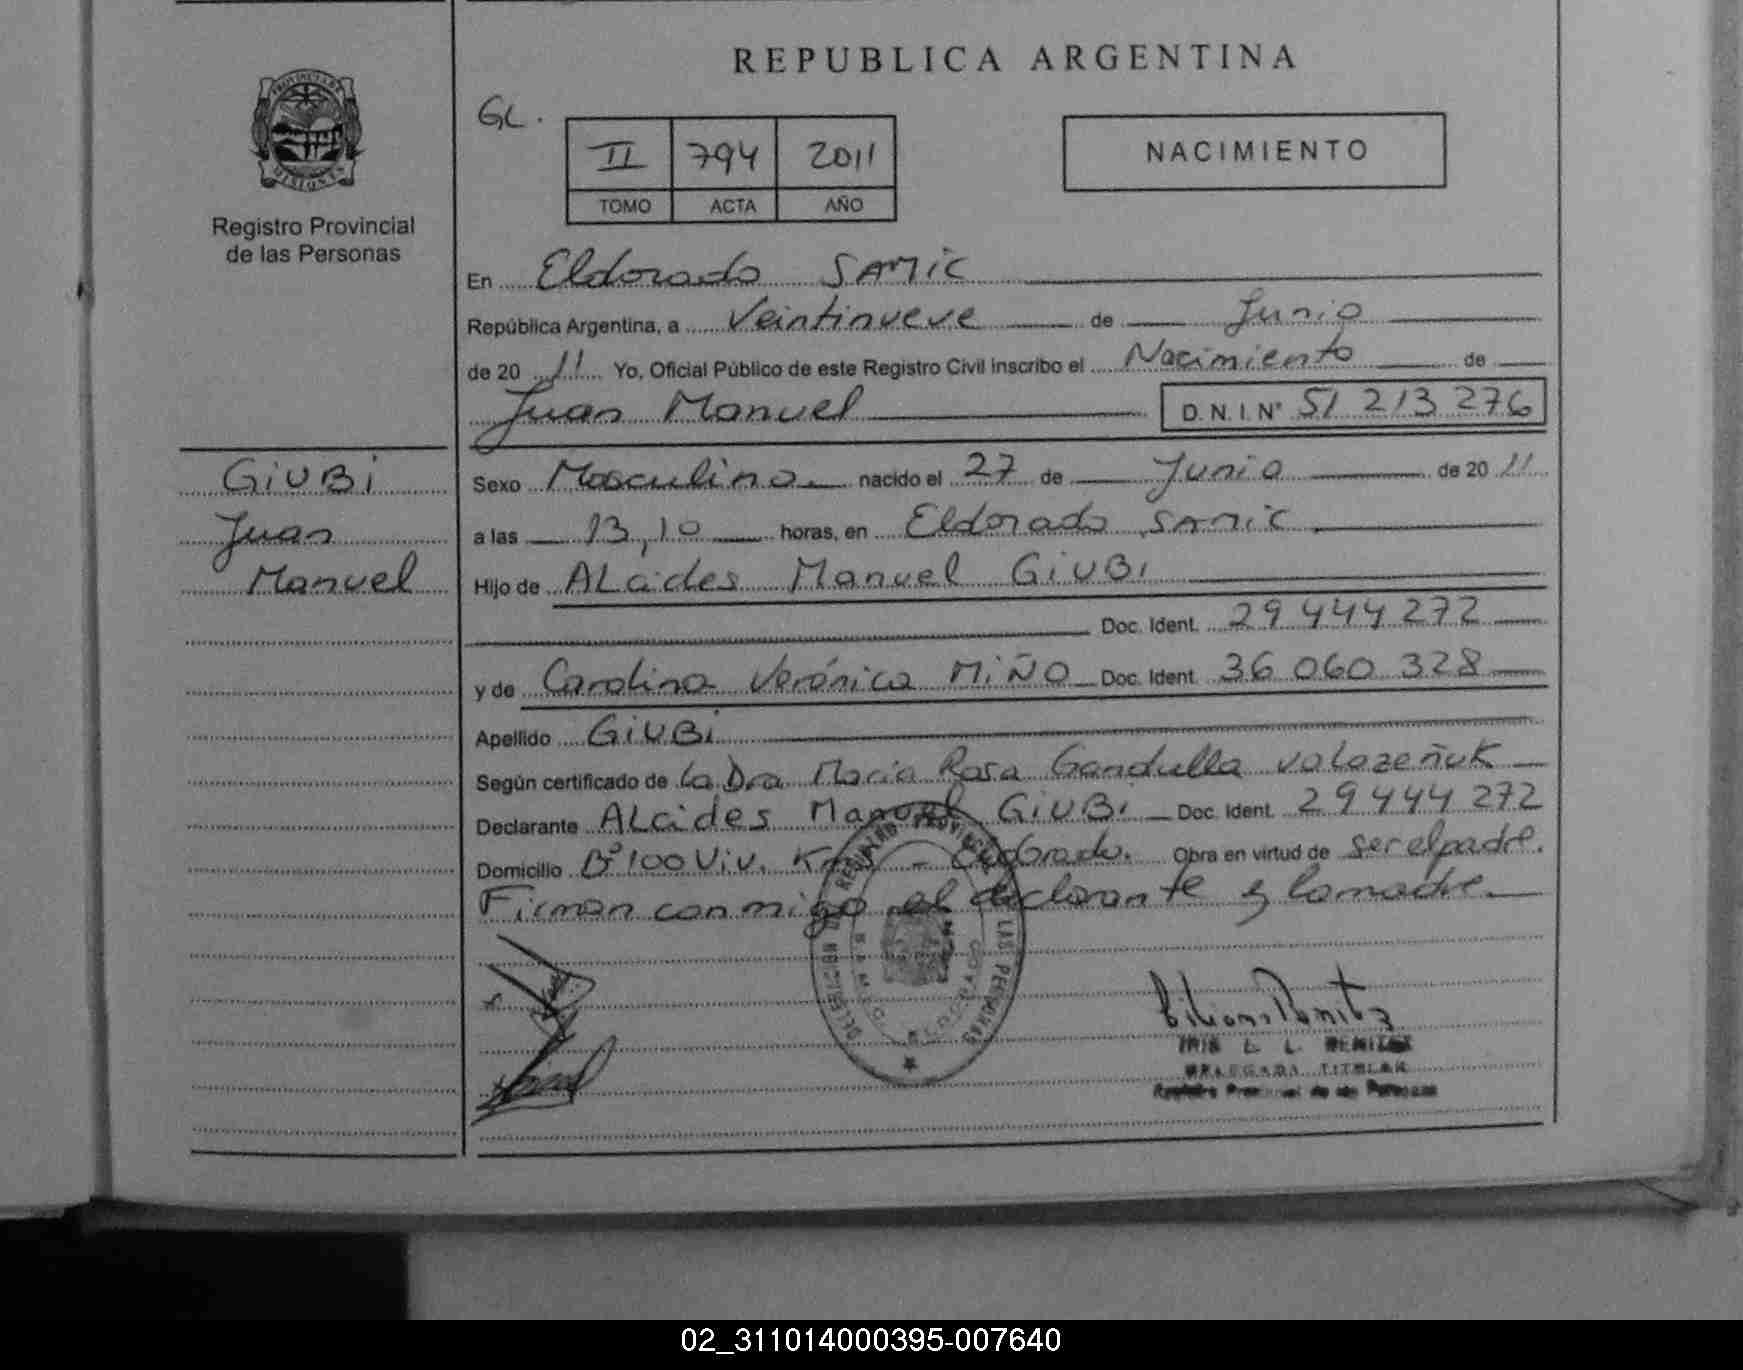 REPUBLICA ARGENTINA
GL.
II 794 2011
TOMO ACTA AÑO
NACIMIENTO
PROVINCIA DE
MISIONES
Registro Provincial
de las Personas
GiUBi
Juan
Manuel
En Eldorado SAMIC
República Argentina, a Veintinueve de Junio
de 20 11 Yo, Oficial Público de este Registro Civil inscribo el Nacimiento de
Juan Manuel D.N.I. N° 51 213 276
Sexo Masculino nacido el 27 de Junio de 20 11
a las 13,10 horas, en Eldorado SAMIC
Hijo de ALcides Manuel GiUBi
Doc. Ident. 29 444 272
y de Carolina Verónica MiÑO Doc. Ident. 36 060 328
Apellido GiUBi
Según certificado de La Dra Maria Rosa Gandulla valazeñuk
Declarante ALcides Manuel GiUBi Doc. Ident. 29444 272
Domicilio B° 100 Viv. - Eldorado. Obra en virtud de ser el padre.
Firman conmigo el declarante y la madre.
REGISTRO PROVINCIAL DE LAS PERSONAS
ELDORADO
IRIS L. L. BENITEZ
DELEGADA TITULAR
Registro Provincial de las Personas
02_311014000395-007640